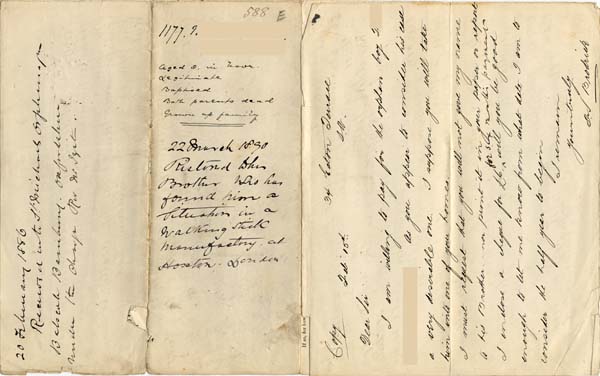 20 February 1886
Received into St Michael's Orphanage
Belsize Hamburg on probation
Under the charge Rev Mr
588 E
1177. J.
Aged 8. in Novr.
Legitimate
Baptised
Both parents dead
Grown up family
22 March 1890
Restored to his
Brother who has
found him a
Situation in a
Walking Stick
Manufactory at
Hoxton. London
34 Eaton Terrace
S.W.
Copy Feb 18th
Dear Sir
I am willing to pay for the orphan boy J.
as you appear to consider his case
a very desirable one. I suppose you will take
him into one of your homes.
I must request that you will not give my name
to his Brother or print it in your paper or report
I enclose a cheque for £6.
for the first payment
will you be good
enough to let me know from what date I am to
consider the half year to begin
I remain
yours truly